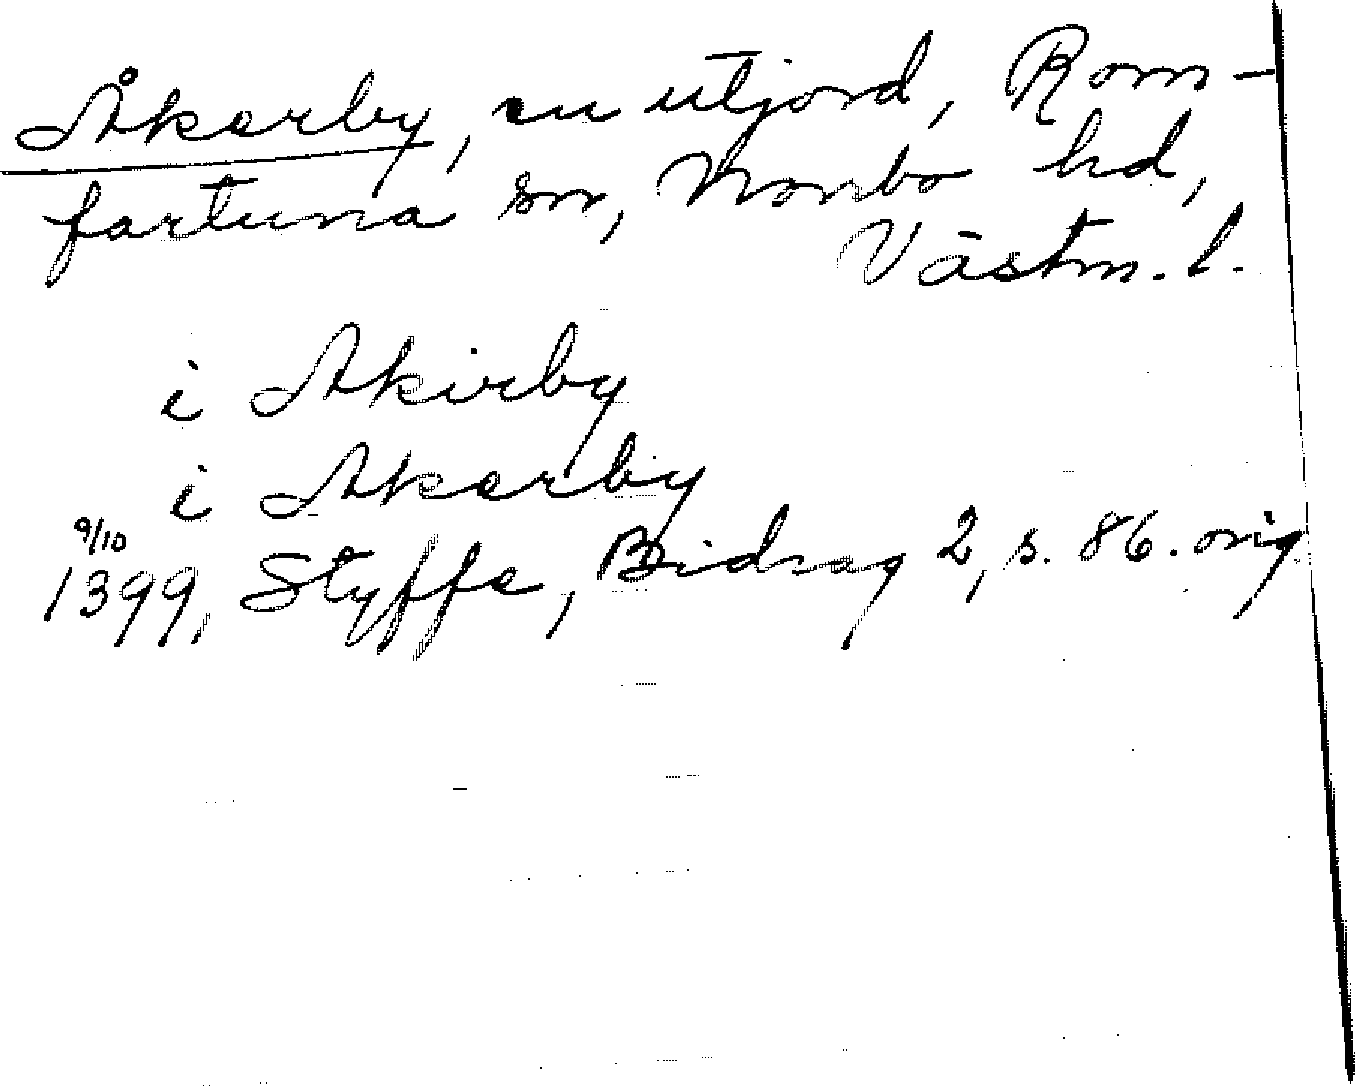 Åkerby, nu utjord, Rom-
fartuna sn, Norrbo hd,
Västm. l.
i Akirby
i Akerby
9/10
1399, Styffe, Bidrag 2, s. 86. orig.